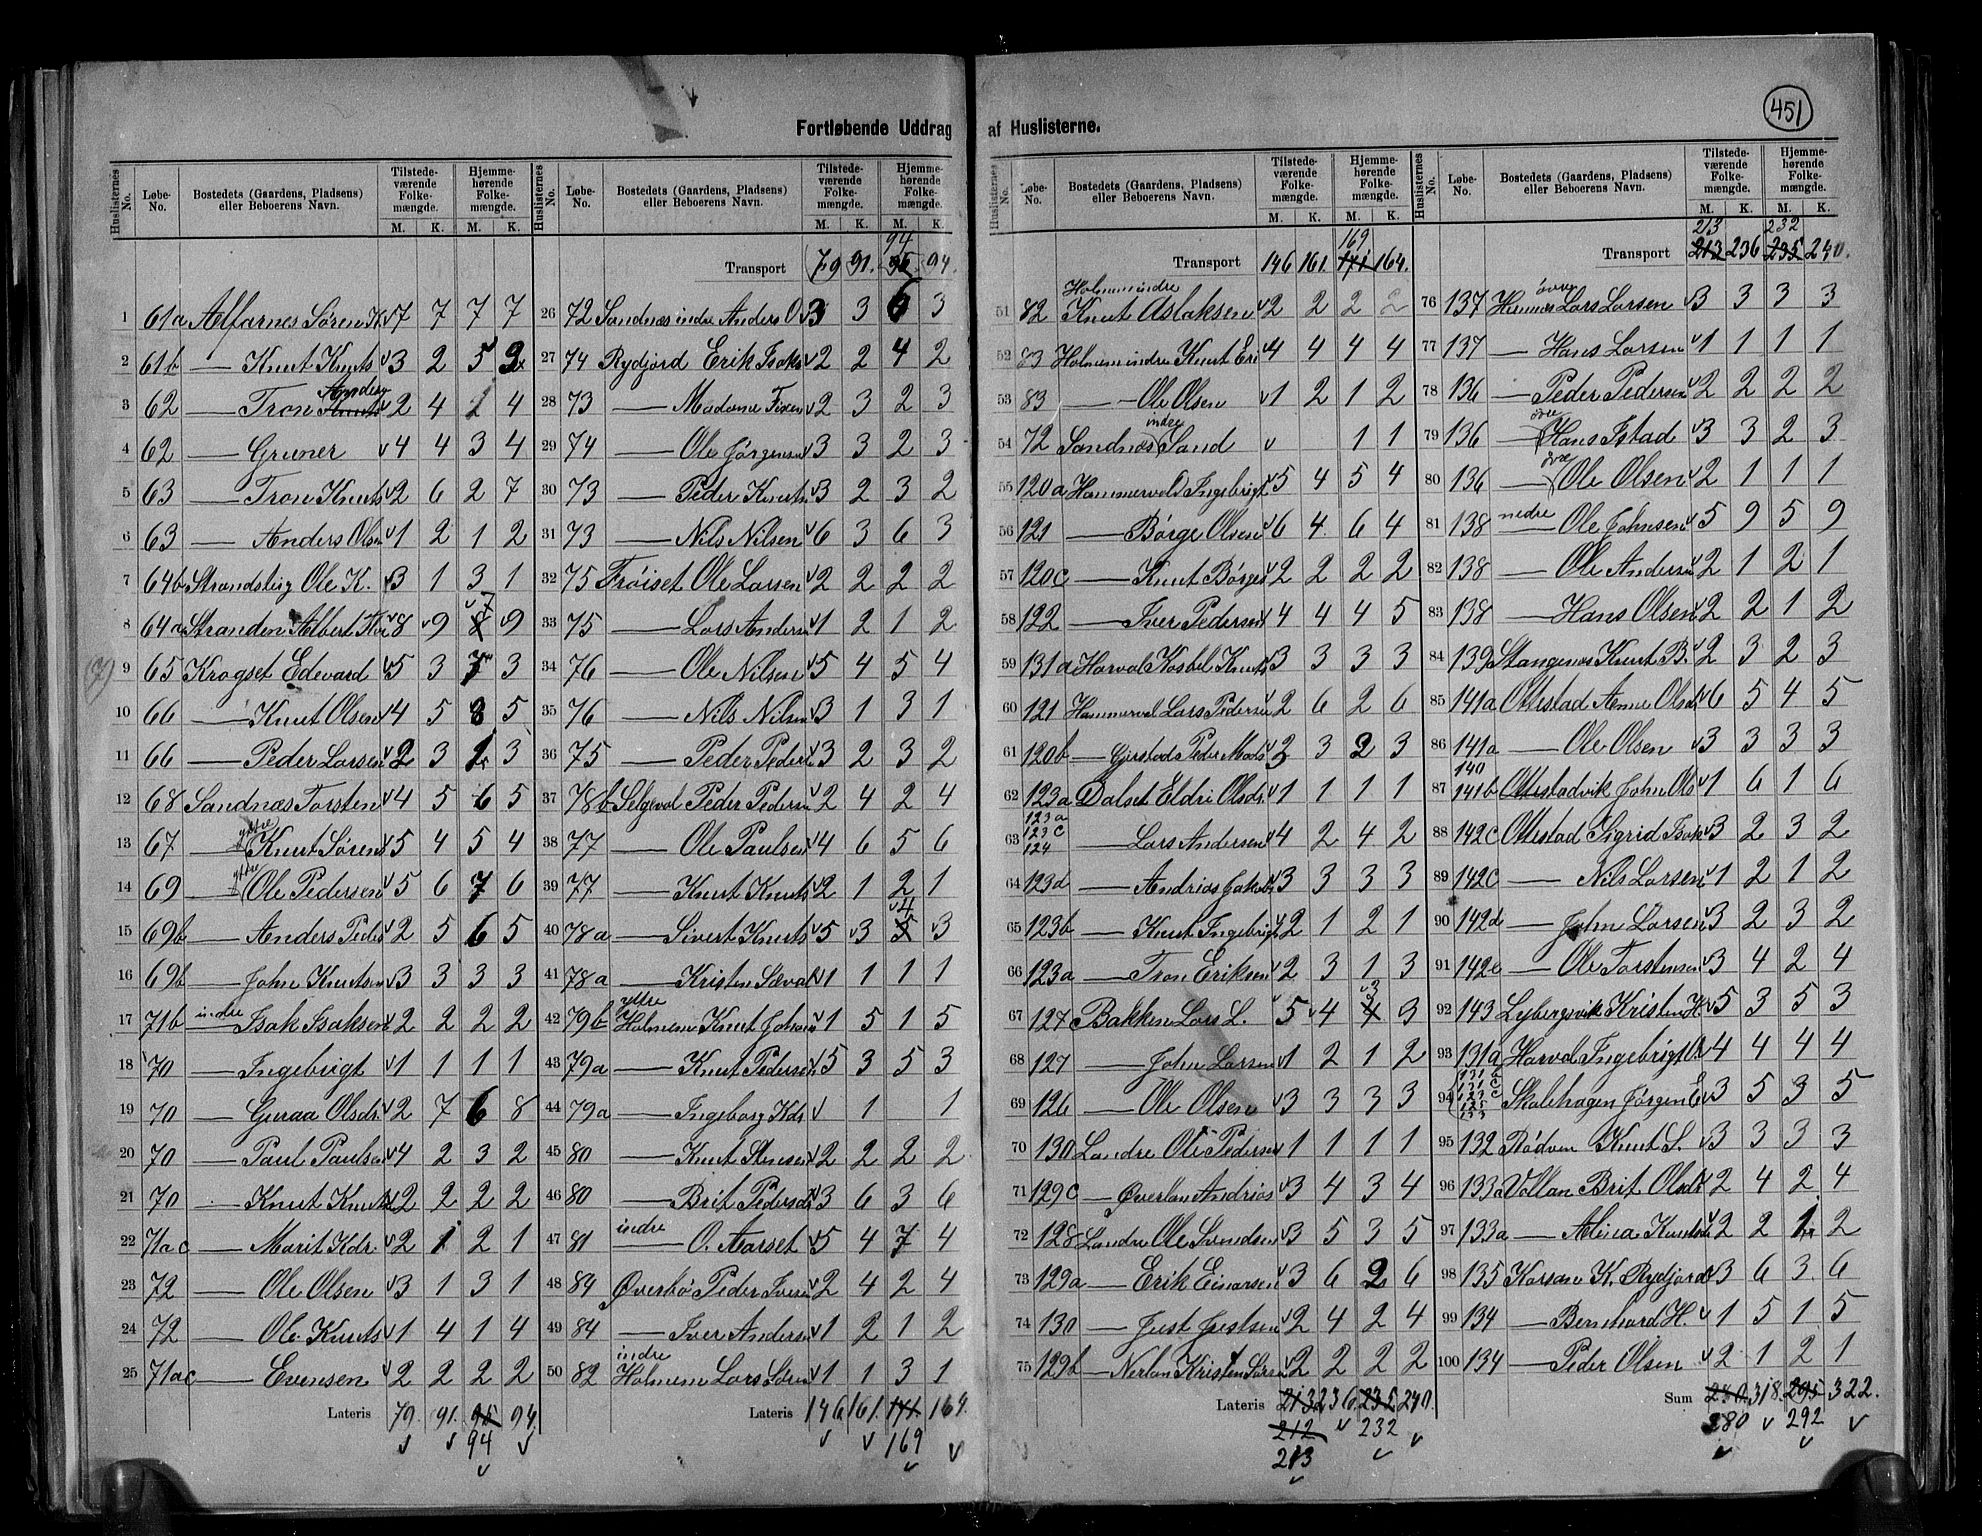 451
Fortløbende Uddrag af Huslisterne.
Huslisternes No. Løbe-No. Bostedets (Gaardens, Pladsens) eller Beboerens Navn. Tilstede-værende Folke-mængde. M. K. Hjemme-hørende Folke-mængde. M. K.
1 61a Alfarnes Søren K. 7 7 7 7
2 61b — Knut Knuts 3 2 5 2
3 62 — Tron Anders 2 4 1 4
4 62 — Gruner 4 4 3 4
5 63 — Tron Knuts 2 6 2 7
6 63 — Anders Olsen 1 2 1 2
7 64b Strandsbeg Ole K. 3 1 3 1
8 64a Stranden Albert 8 9 7 9
9 65 Krogset Edevard 5 3 7 3
10 66 — Knut Olsen 4 5 8 5
11 66 — Peder Larsen 2 3 1 3
12 68 Sandnæs Torsten 4 5 6 5
13 67 — ytre Knut Sørens 5 4 5 4
14 69 — ytre Ole Pedersen 5 6 7 6
15 69b — Anders Peders 2 5 6 5
16 69b — John Knutsen 3 3 3 3
17 71b indre — Isak Isaksen 2 2 2 2
18 70 — Ingebrigt 1 1 1 1
19 70 — Guraa Olsdr 2 7 6 8
20 70 — Paul Paulsen 4 2 3 2
21 70 — Knut Knuts 2 2 2 2
22 71ac — Marit Kdr. 2 1 2 1
23 72 — Ole Olsen 3 1 3 1
24 72 — Ole Knuts 1 4 1 4
25 71ac — Evensen 2 2 2 2
Lateris 79. 91. 95 94
94
Transport 79 91. 95 94 94.
26 72 Sandnæs indre Anders O 3 3 6 3
27 74 Rydjord Erik Isaks 2 2 4 2
28 73 — Madame Fixen 2 3 2 3
29 74 — Ole Jørgensen 3 3 2 3
30 73 — Peder Knuts 3 2 3 2
31 73 — Nils Nilsen 6 3 6 3
32 75 Frøiset Ole Larsen 2 2 2 2
33 75 — Lars Anders 1 2 1 2
34 76 — Ole Nilsen 5 4 5 4
35 76 — Nils Nilsen 3 1 3 1
36 75 — Peder Peder 3 2 3 2
37 78b Selgevol Peder Peders 2 4 2 4
38 77 — Ole Paulsen 4 6 5 6
39 77 — Knut Knuts 2 1 2 1
40 78a — Sivert Knuts 5 3 4 3
41 78a — Kristen 1 1 1 1
42 79b ytre Holmem Knut Johan 1 5 1 5
43 79a — Knut Peders 5 3 5 3
44 79a — Ingeborg Kdr 1 1
45 80 — Knut Stensen 2 2 2 2
46 80 — Brit Pedersdr 3 6 3 6
47 81 indre — O. Aarset 5 4 7 4
48 84 Øverbø Peder Ivers 2 4 2 4
49 84 — Iver Anders 1 2 1 2
50 82 indre Holmem Lars Søren 1 1 3 1
Lateris 146 161. 171 164.
169
Transport 146 161. 169 171 164.
51 82 Holmem indre Knut Aslaksen 2 2 2 2
52 83 Holmem indre Knut Eri 4 4 4 4
53 83 — Ole Olsen 1 2 1 2
54 72 Sandnæs indre Sand 1 1
55 120a Hammervold Ingebrigt 5 4 5 4
56 121 — Børge Olsen 6 4 6 4
57 120c — Knut Børges 2 2 2 2
58 122 — Iver Pedersen 4 4 4 5
59 131a Harvol Kosbel Knuts 3 3 3 3
60 121 Hammervol Lars Peders 2 6 2 6
61 120b — Gjerstad Peder Mads 3 3 2 3
62 123a Dalset Eldri Olsdr 1 1 1 1
63 123a 123c 124 — Lars Andersen 4 2 4 2
64 123d — Andrias Jakob 3 3 3 3
65 123b — Knut Ingebrigt 2 1 2 1
66 123a — Tron Eriksen 2 3 1 3
67 127c Bakken Lars L. 5 4 3 3
68 127 — John Larsen 1 2 1 2
69 126 — Ole Olsen 3 3 3 3
70 130 Landre Ole Peders 1 1 1 1
71 129c — Øverlan Andrias 3 4 3 4
72 128 Landre Ole Svendsen 3 5 3 5
73 129a — Erik Einarsen 3 6 2 6
74 130 — Just Justsen 2 4 2 4
75 129b — Nerlan Kristen Larsen 2 2 2 2
Lateris 213 236. 235 240.
212 232
213
Transport 213 213 236 232 235 240.
76 137 Hemnes øvre Lars Larsen 3 3 3 3
77 137 — Hans Larsen 1 1 1 1
78 136 — Peder Pedersen 2 2 2 2
79 136 — øvre Hans Istad 3 3 2 3
80 136 — øvre Ole Olsen 2 1 1 1
81 138 nedre — Ole Johnsen 5 9 5 9
82 138 — Ole Anders 2 1 2 1
83 138 — Hans Olsen 2 2 1 2
84 139 Stangenes Knut B. 2 3 2 3
85 141a Ottestad Anne Olsdr 6 5 4 5
86 141a — Ole Olsen 3 3 3 3
87 140 141b Ottestadvik John Ols 1 6 1 6
88 142c Ottestad Sigrid Isak 3 2 3 2
89 142c — Nils Larsen 1 2 1 2
90 142d — John Larsen 3 2 3 2
91 142e — Ole Torstensen 3 4 2 4
92 143 Lybergsvik Kristen H. 5 3 5 3
93 131a Harvol Ingebrigt 4 4 4 4
94 131b 131c 123c 125 133 Skalehagen Jørgen E 3 5 3 5
95 132 Rødven Knut L. 3 3 3 3
96 133a Vollan Brit Olsdr 2 4 2 4
97 133a — Alina Knuts 2 2 1 2
98 135 Korsan K. Rydjord 3 6 3 6
99 134 — Bernhard H. 1 5 1 5
100 134 — Peder Olsen 2 1 2 1
Sum 280. 318. 295 322.
280 292